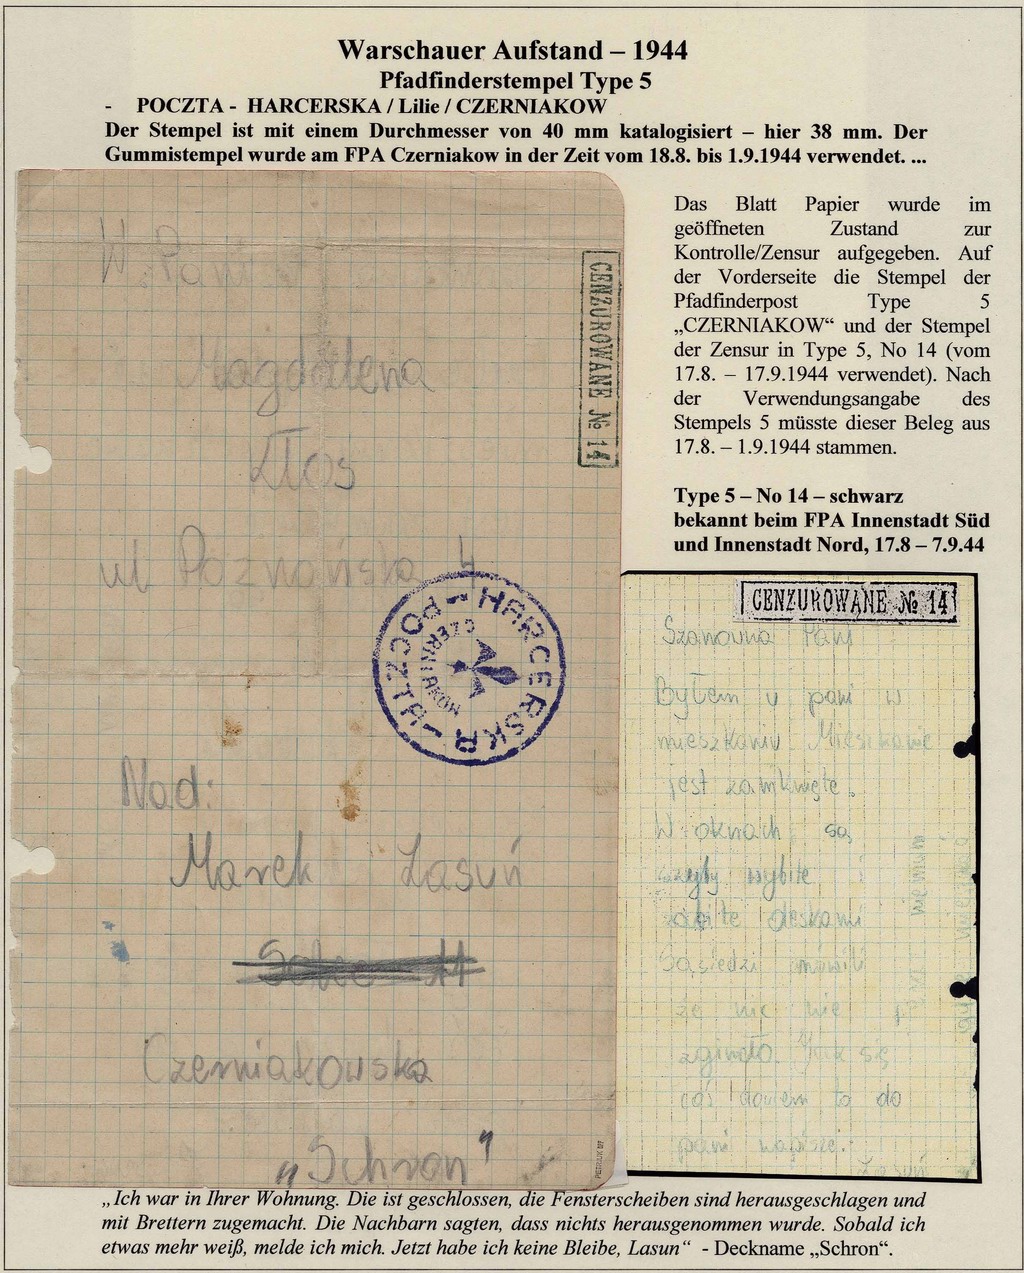 Warschauer Aufstand – 1944
Pfadfinderstempel Type 5
- POCZTA - HARCERSKA / Lilie / CZERNIAKOW
Der Stempel ist mit einem Durchmesser von 40 mm katalogisiert – hier 38 mm. Der
Gummistempel wurde am FPA Czerniakow in der Zeit vom 18.8. bis 1.9.1944 verwendet. ...
W. Pani
Magdalena
Kłos
ul Poznańska 4
CENZUROWANE № 14
POCZTA - HARCERSKA -
CZERNIAKOW
Nad:
Marek Lasuń
Czerniakowska
"Schron"
PETRIUK BT
Das Blatt Papier wurde im
geöffneten Zustand zur
Kontrolle/Zensur aufgegeben. Auf
der Vorderseite die Stempel der
Pfadfinderpost Type 5
„CZERNIAKOW“ und der Stempel
der Zensur in Type 5, No 14 (vom
17.8. – 17.9.1944 verwendet). Nach
der Verwendungsangabe des
Stempels 5 müsste dieser Beleg aus
17.8. – 1.9.1944 stammen.
Type 5 – No 14 – schwarz
bekannt beim FPA Innenstadt Süd
und Innenstadt Nord, 17.8 – 7.9.44
CENZUROWANE № 14
Szanowna Pani
Byłem u pani w
mieszkaniu Mieszkanie
jest zamknięte.
W oknach są
szyby wybite i
zabite deskami
Sąsiedzi mówili
że nic nie
zginęło się
coś dowiem to do
pani napiszę.
„Ich war in Ihrer Wohnung. Die ist geschlossen, die Fensterscheiben sind herausgeschlagen und
mit Brettern zugemacht. Die Nachbarn sagten, dass nichts herausgenommen wurde. Sobald ich
etwas mehr weiß, melde ich mich. Jetzt habe ich keine Bleibe, Lasun“ - Deckname „Schron“.